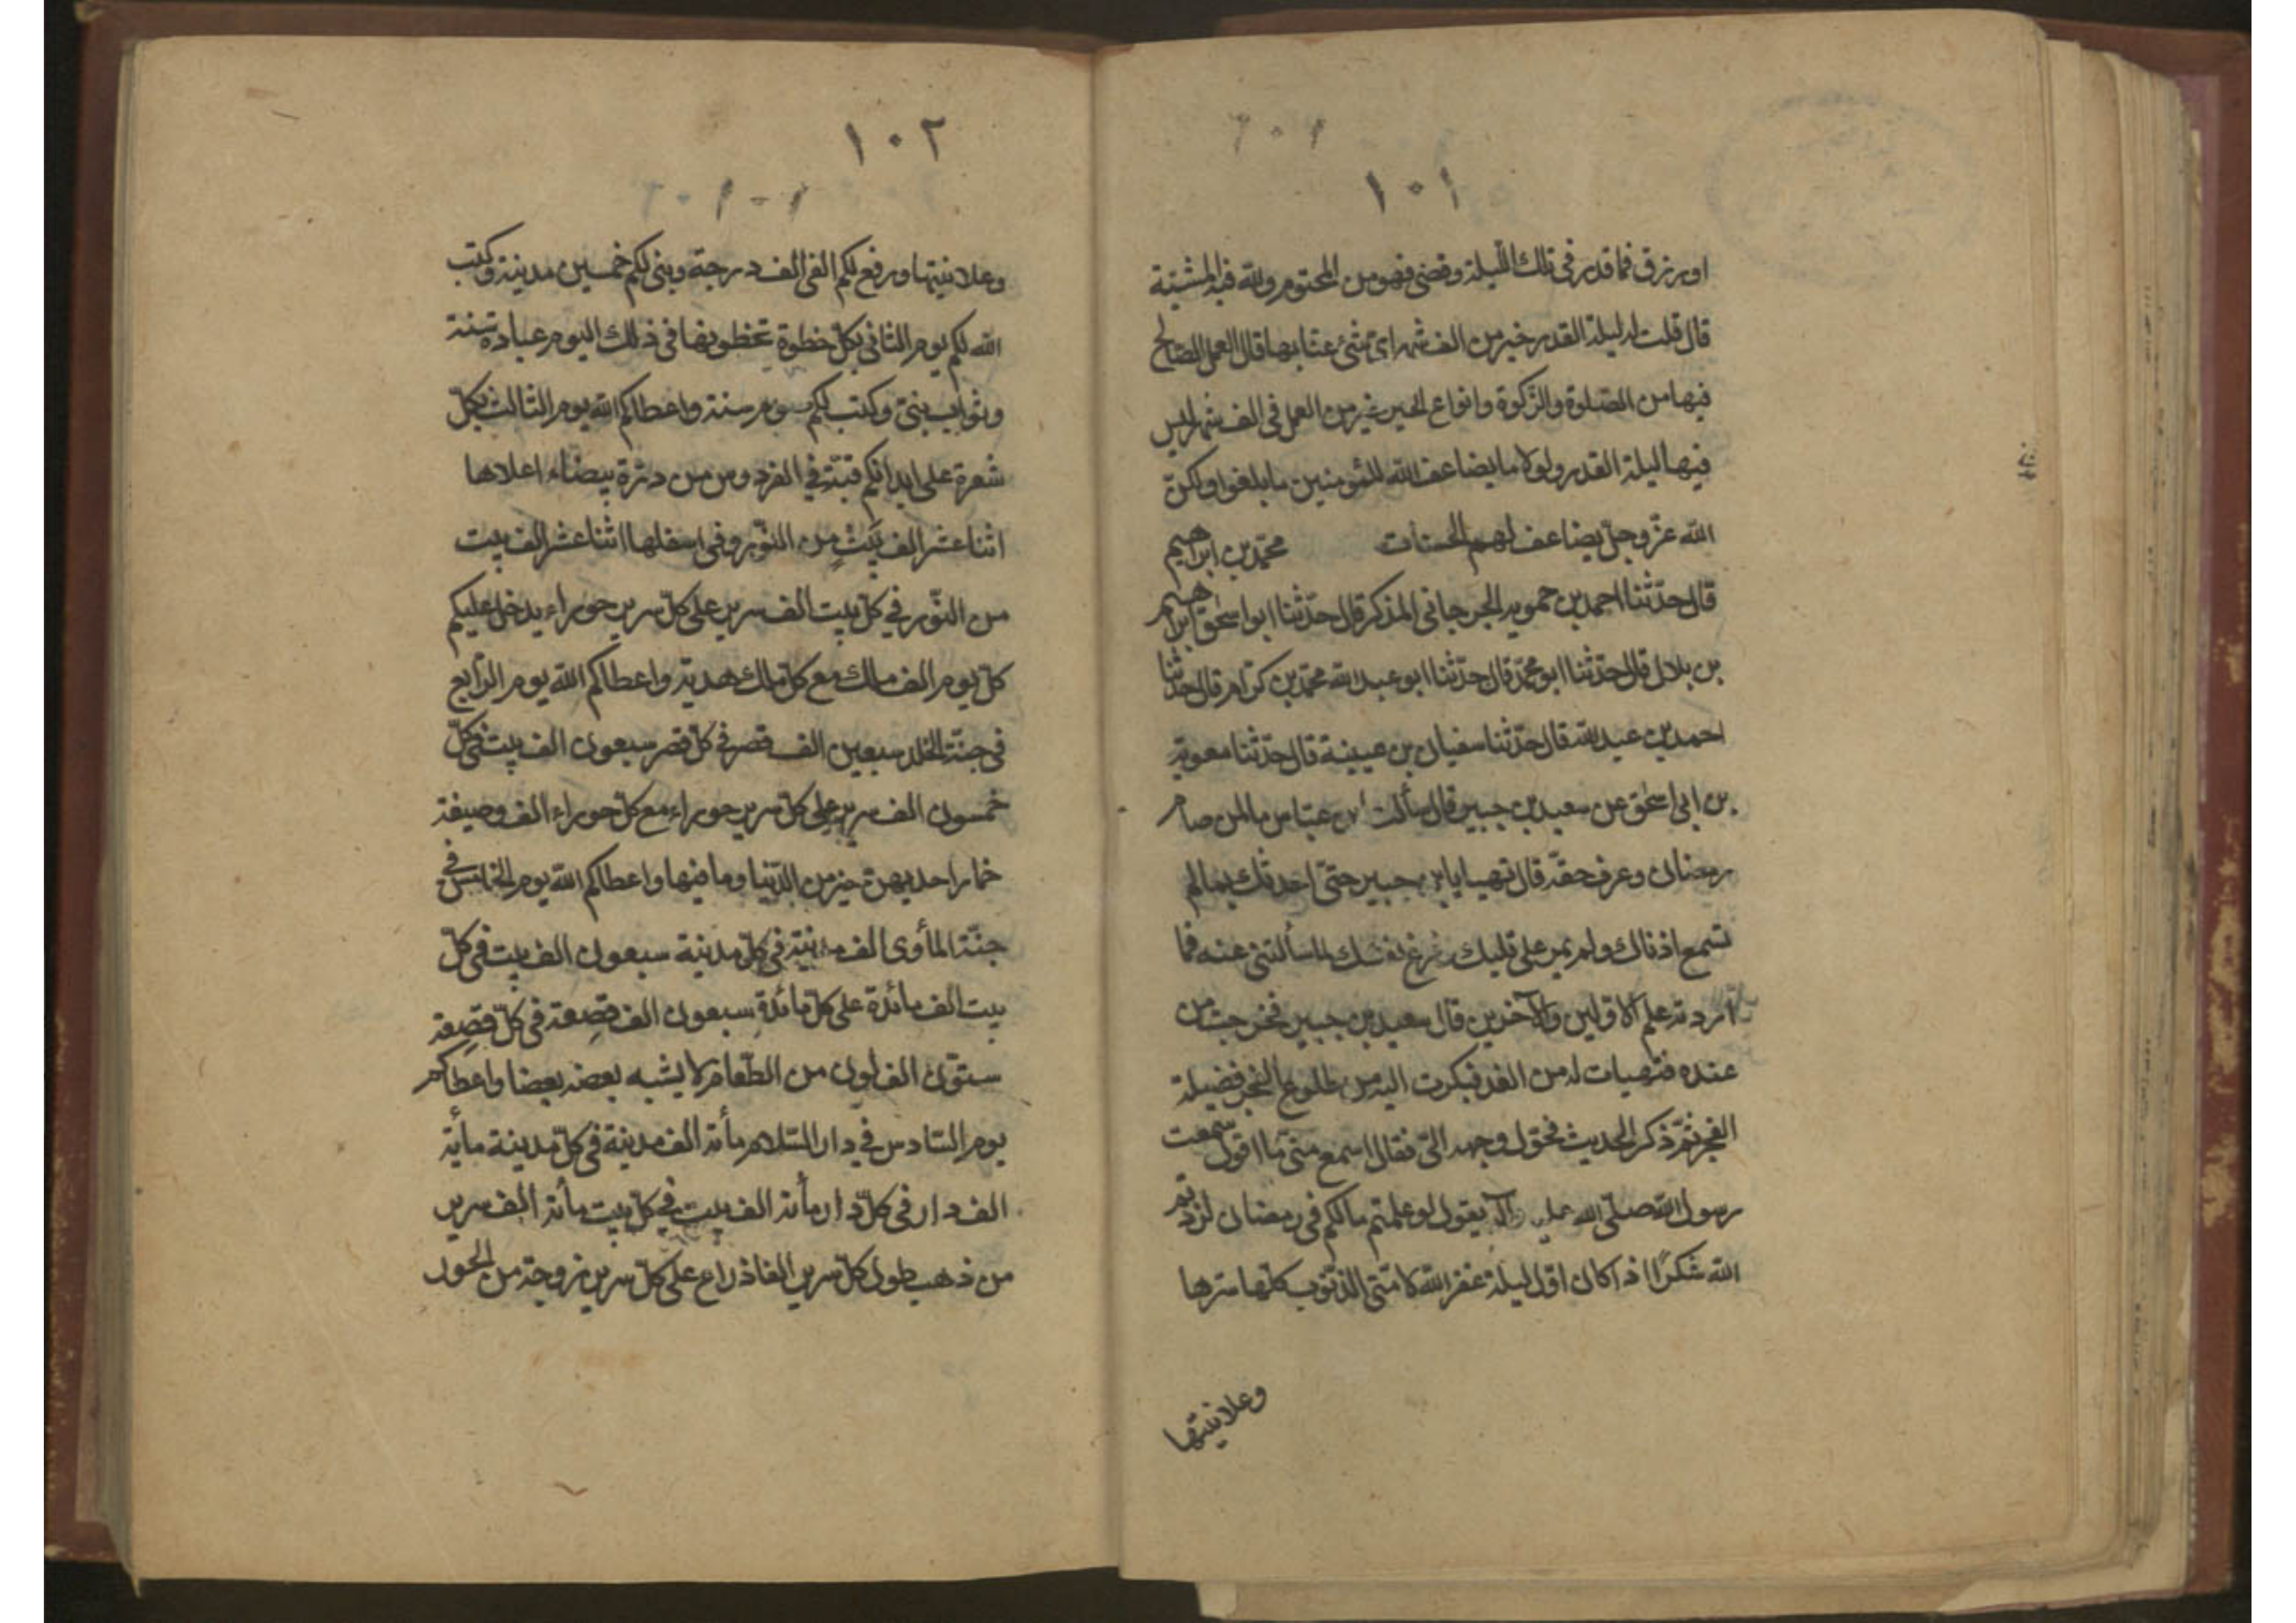 ١٠١
او رزق فما قدر فى تلك اللّيلة وقضى فهو من المحتوم وللّه فيه المشيّة
قال قلت له ليلة القدر خير من الف شهر اىّ شئ عنا بها قال العمل الصّالح
فيها من الصّلوة والزّكوة وانواع الخير خير من العمل فى الف شهر ليس
فيها ليلة القدر ولولا ما يضاعف اللّه للمؤمنين ما بلغوا ولكنّ
اللّه عزّ وجلّ يضاعف لهم الحسنات محمّد بن ابراهيم
قال حدّثنا احمد بن حمويه الجرجانى المذكر قال حدّثنا ابو اسحٰق ابراهيم
بن بلال قال حدّثنا ابو محمّد قال حدّثنا ابو عبد اللّه محمّد بن كرّام قال حدّثنا
احمد بن عبد اللّه قال حدّثنا سفيان بن عيينة قال حدّثنا معوية
بن ابى اسحٰق عن سعيد بن جبير قال سألت ابن عبّاس ما لمن صام
رمضان وعرف حقّه قال تهيا يابن جبير حتّى احدثك بما لم
تسمع اذناك ولم يمر على قلبك فرغ نفسك لما سألتنى عنه فما
اردته علم الاوّلين والآخرين قال سعيد بن جبير فخرجت من
عنده فتهيات له من الغد فبكرت اليه من طلوع الفجر فضيلة
الفجر ثمّ ذكر الحديث فحوّل وجهه الىّ فقال اسمع منّى ما اقول سمعت
رسول اللّه صلّى اللّه عليه وآله يقول لو علمتم مالكم فى رمضان لزدتم
اللّه شكرًا اذا كان اوّل ليلة غفر اللّه لامّتى الذّنوب كلّها سرها
وعلانيتها
١٠٢
وعلانيتها ورفع لكم الفى الف درجة وبنى لكم خمسين مدينة وكتب
اللّه لكم يوم الثانى بكلّ خطوة تخطونها فى ذلك اليوم عبادة سنة
وثواب نبىّ وكتب لكم صوم سنة واعطاكم اللّه يوم الثالث بكلّ
شعرة على ابدانكم قبّة فى الفردوس من درّة بيضاء اعلاها
اثنا عشر الف بَيْتٍ من النّور وفى اسفلها اثنا عشر الف بيت
من النّور فى كلّ بيت الف سرير على كلّ سرير حوراء يدخل عليكم
كلّ يوم الف ملك مع كلّ ملك هدية واعطاكم اللّه يوم الرّابع
فى جنّة الخلد سبعين الف قصر فى كلّ قصر سبعون الف بيت فى كلّ
خمسون الف سرير على كلّ سرير حوراء مع كلّ حوراء الف وصيفة
خمار احديهنّ خير من الدّنيا وما فيها واعطاكم اللّه يوم الخامس فى
جنّة المأوى الف مدينة فى كلّ مدينة سبعون الف بيت فى كلّ
بيت الف مائدة على كلّ مائدةٍ سبعون الف قصِعة فى كلّ قصِعة
ستّون الف لون من الطّعام لا يشبه بعضه بعضا واعطاكم
يوم السّادس فى دار السّلام مأئة الف مدينة فى كلّ مدينة مأية
الف دار فى كلّ دار مأئة الف بيت فى كلّ بيت مأئة الف سرير
من ذهب طول كلّ سرير الفا ذراع على كلّ سرير زوجة من الحور